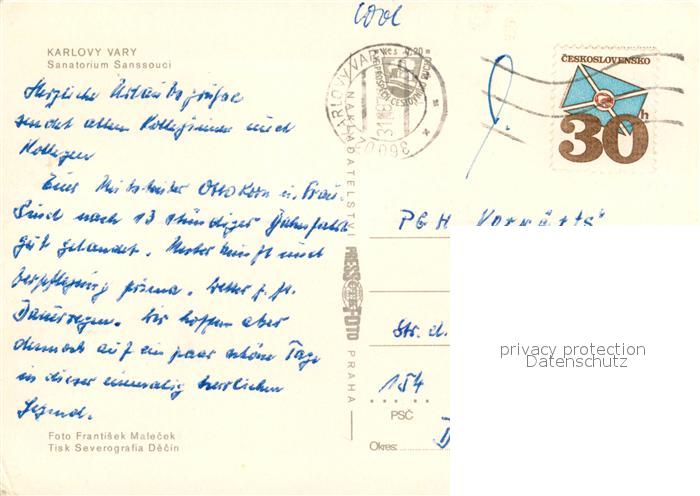 KARLOVY VARY
Sanatorium Sanssouci
Herzliche Urlaubsgrüße
sendet allen Kolleginnen und
Kollegen
Euer Mitarbeiter Otto Korn u. Frau.
Sind nach 13 stündiger Bahnfahrt
gut gelandet. Unterkunft und
Verpflegung prima. Wetter z. Zt.
Dauerregen. Wir hoffen aber
dennoch auf ein paar schöne Tage
in dieser einmalig herrlichen
Gegend.
Foto František Maleček
Tisk Severografia Děčín
NAKLADATELSTVÍ
PRESSFOTO
PRAHA
KARLOVY VARY
360 03
ČESKOSLOVENSKO
30h
PGH "Vorwärts"
Str. d.
154
PSČ
Okres:
D
privacy protection
Datenschutz